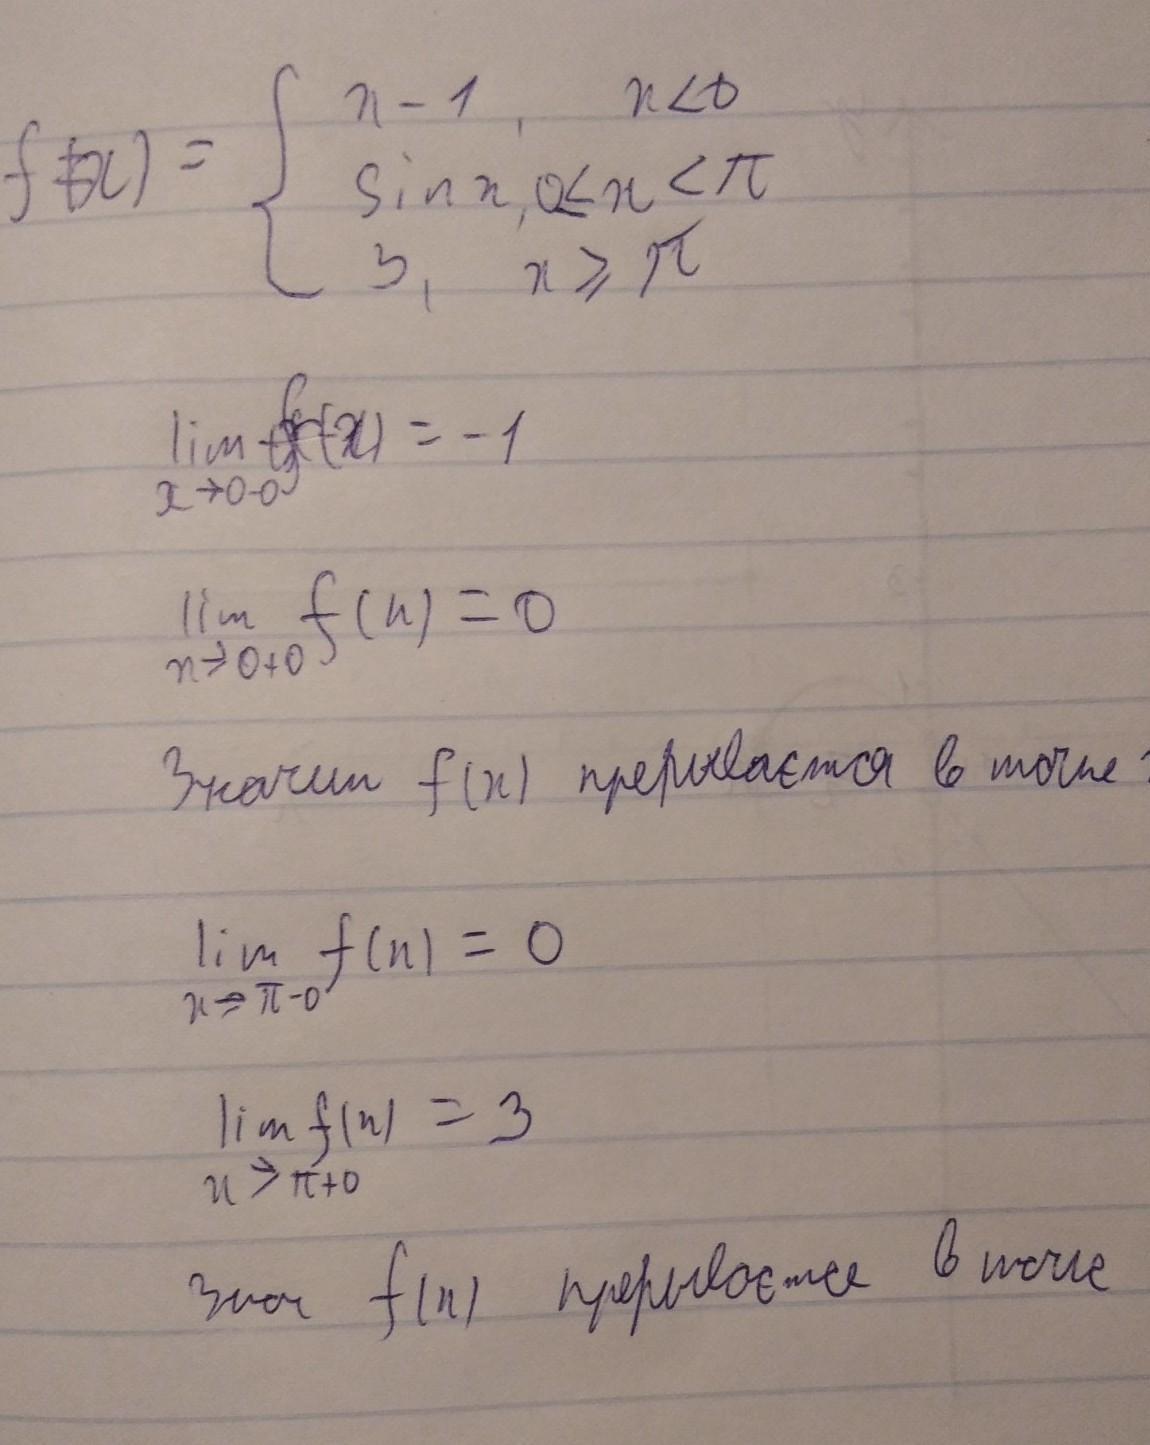 f(x) = { x - 1, x < 0
sin x, 0 ≤ x < π
3, x ⩾ π
lim f(x) = -1
x → 0-0
lim f(x) = 0
x → 0+0
Значит f(x) прерывается в точке
lim f(x) = 0
x → π-0
lim f(x) = 3
x → π+0
Знач f(x) прерывается в точке